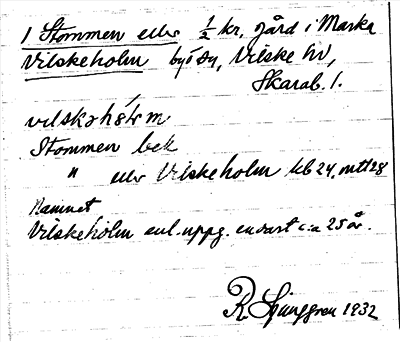 1 Stommen eller 1/2 kr. gård i Marka
Vilskeholm by i dy, Vilske hd,
Skarab. l.
vilskəhólm
Stommen bek
" eller Vilskeholm kb 24, mtl 28
Namnet
Vilskeholm enl. uppg. endast c:a 25 år.
R Ljunggren 1932